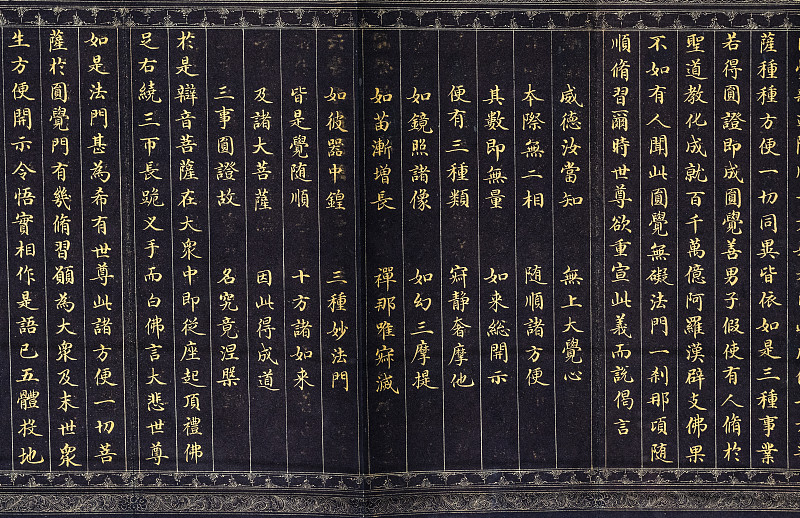 薩種種方便一切同異皆依如是三種事業
若得圓證即成圓覺善男子假使有人脩於
聖道教化成就百千萬億阿羅漢辟支佛果
不如有人聞此圓覺無礙法門一剎那項隨
順脩習爾時世尊欲重宣此義而說偈言
威德汝當知 無上大覺心
本際無二相 隨順諸方便
其數即無量 如来總開示
便有三種類 寂静奢摩他
如鏡照諸像 如幻三摩提
如苗漸增長 禪那唯寂滅
如彼器中鍠 三種妙法門
皆是覺隨順 十方諸如来
及諸大菩薩 因此得成道
三事圓證故 名究竟涅槃
於是辯音菩薩在大衆中即從座起頂禮佛
足右繞三帀長跪叉手而白佛言大悲世尊
如是法門甚為希有世尊此諸方便一切菩
薩於圓覺門有幾脩習願為大衆及末世衆
生方便開示令悟實相作是語已五體投地